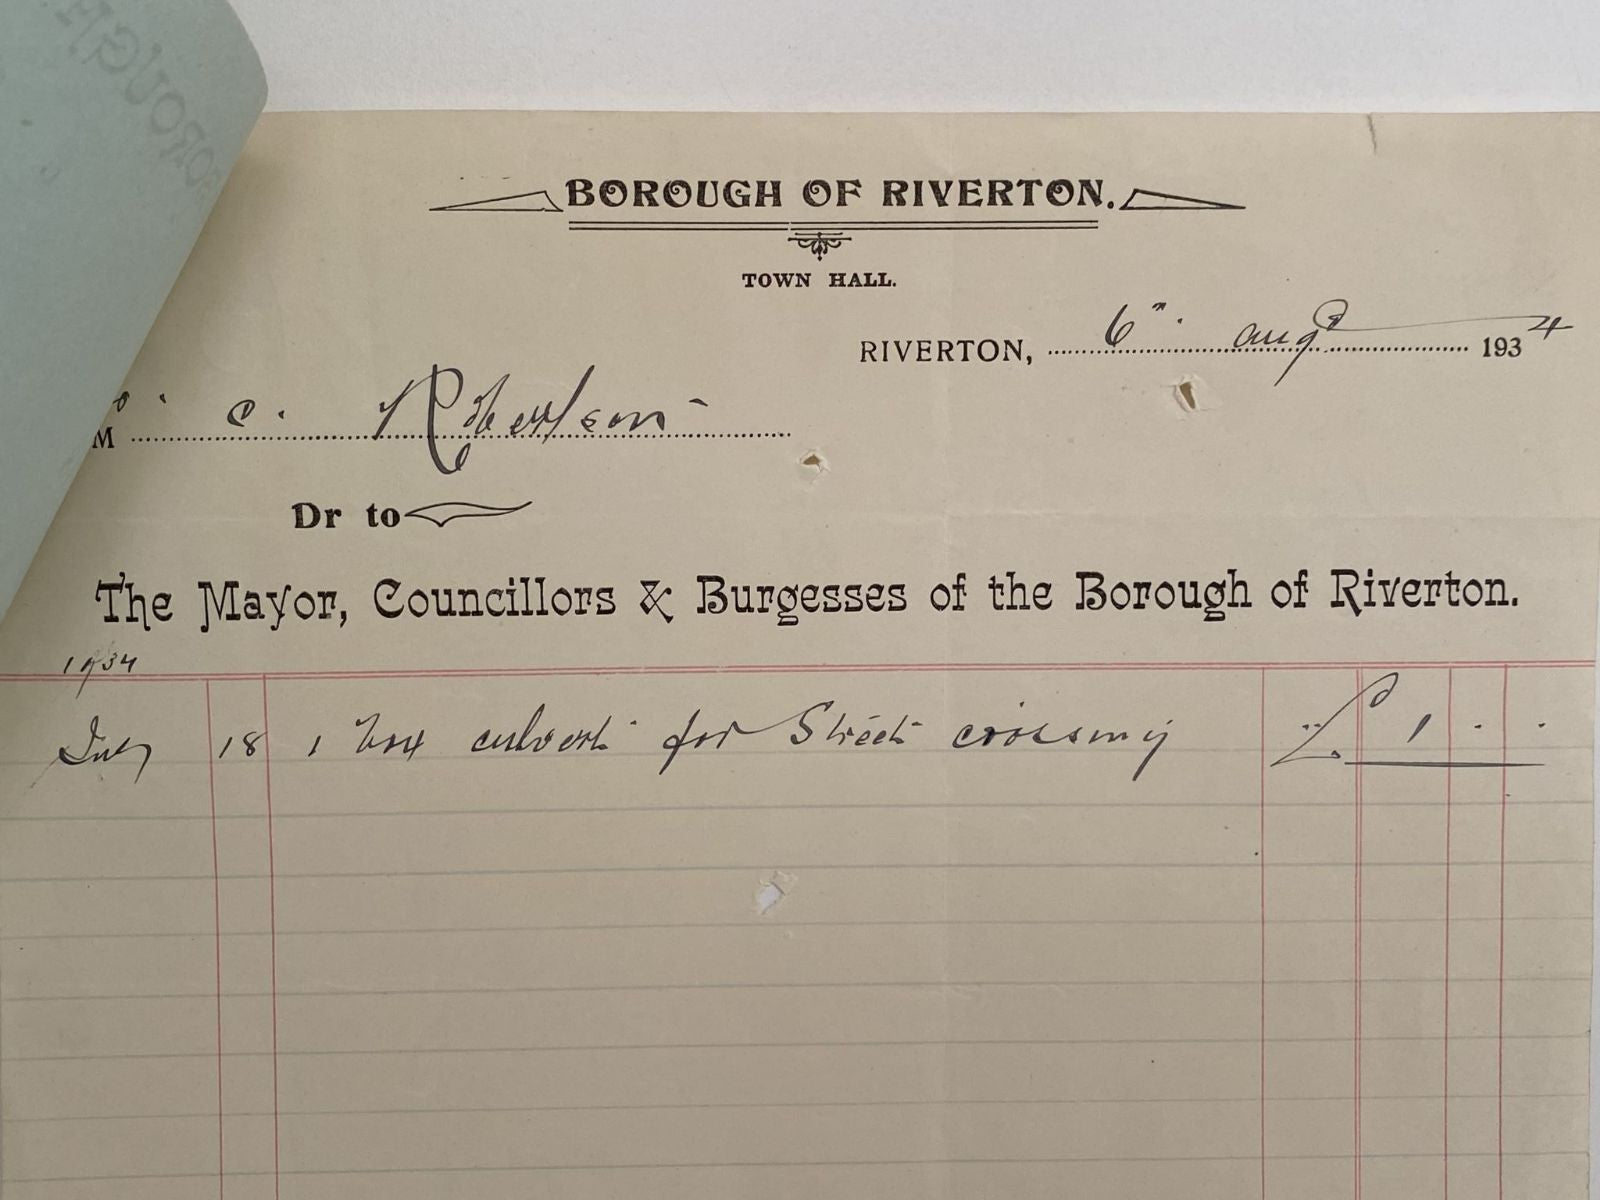 BOROUGH
BOROUGH OF RIVERTON.
TOWN HALL.
RIVERTON, 6th. Augt 1934
M C. Robertson
Dr to
The Mayor, Councillors & Burgesses of the Borough of Riverton.
1934
July 18 1 box culvert for Street crossing £ 1 . .